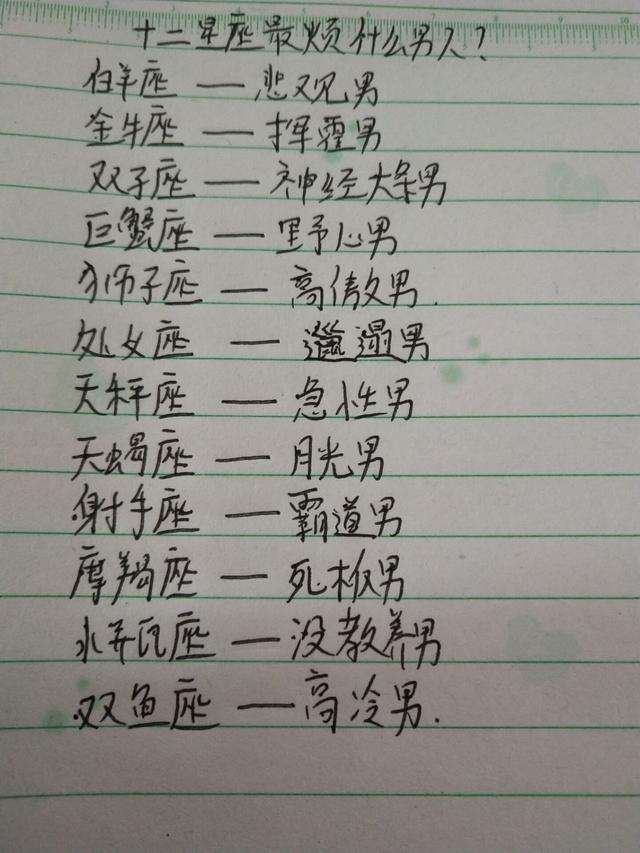 十二星座最烦什么男人?
白羊座 — 悲观男
金牛座 — 挥霍男
双子座 — 神经大条男
巨蟹座 — 野心男
狮子座 — 高傲男.
处女座 — 邋遢男
天秤座 — 急性男
天蝎座 — 月光男
射手座 — 霸道男
摩羯座 — 死板男
水瓶座 — 没教养男
双鱼座 — 高冷男.